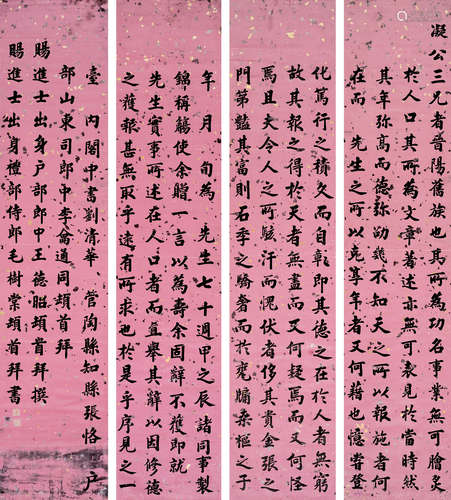 凝公三兄者晉陽舊族也其所為功名事業無可膾炙
於人口其所為文章著述亦無可表見於當時然
其年弥高而德弥劭幾不知天之所以報施者何
在而 先生之所以克享年者又何藉也憶嘗登
化篤行之積久而自彰即其德之在於人者無窮
故其報之得於天者無盡而又何疑焉而又何怪
焉且夫今人之所駭汗而愧伏者侈其貴金張之
門第豔其富則石季之驕奢而於甕牖桑樞之子
年 月 旬為 先生七十週甲之辰諸同事製
錦稱觴使余贈一言以為壽余固辭不獲即就
先生實事所述在人口者而直舉其辭以因修德
之獲報甚無取乎遠有所求也於是乎序見之一
臺 內閣中書劉清華 管陶縣知縣張恪 戶
部山東司郎中李崙通同頓首拜
賜進士出身戶部郎中王德昭頓首拜撰
賜進士出身禮部侍郎毛樹棠頓首拜書